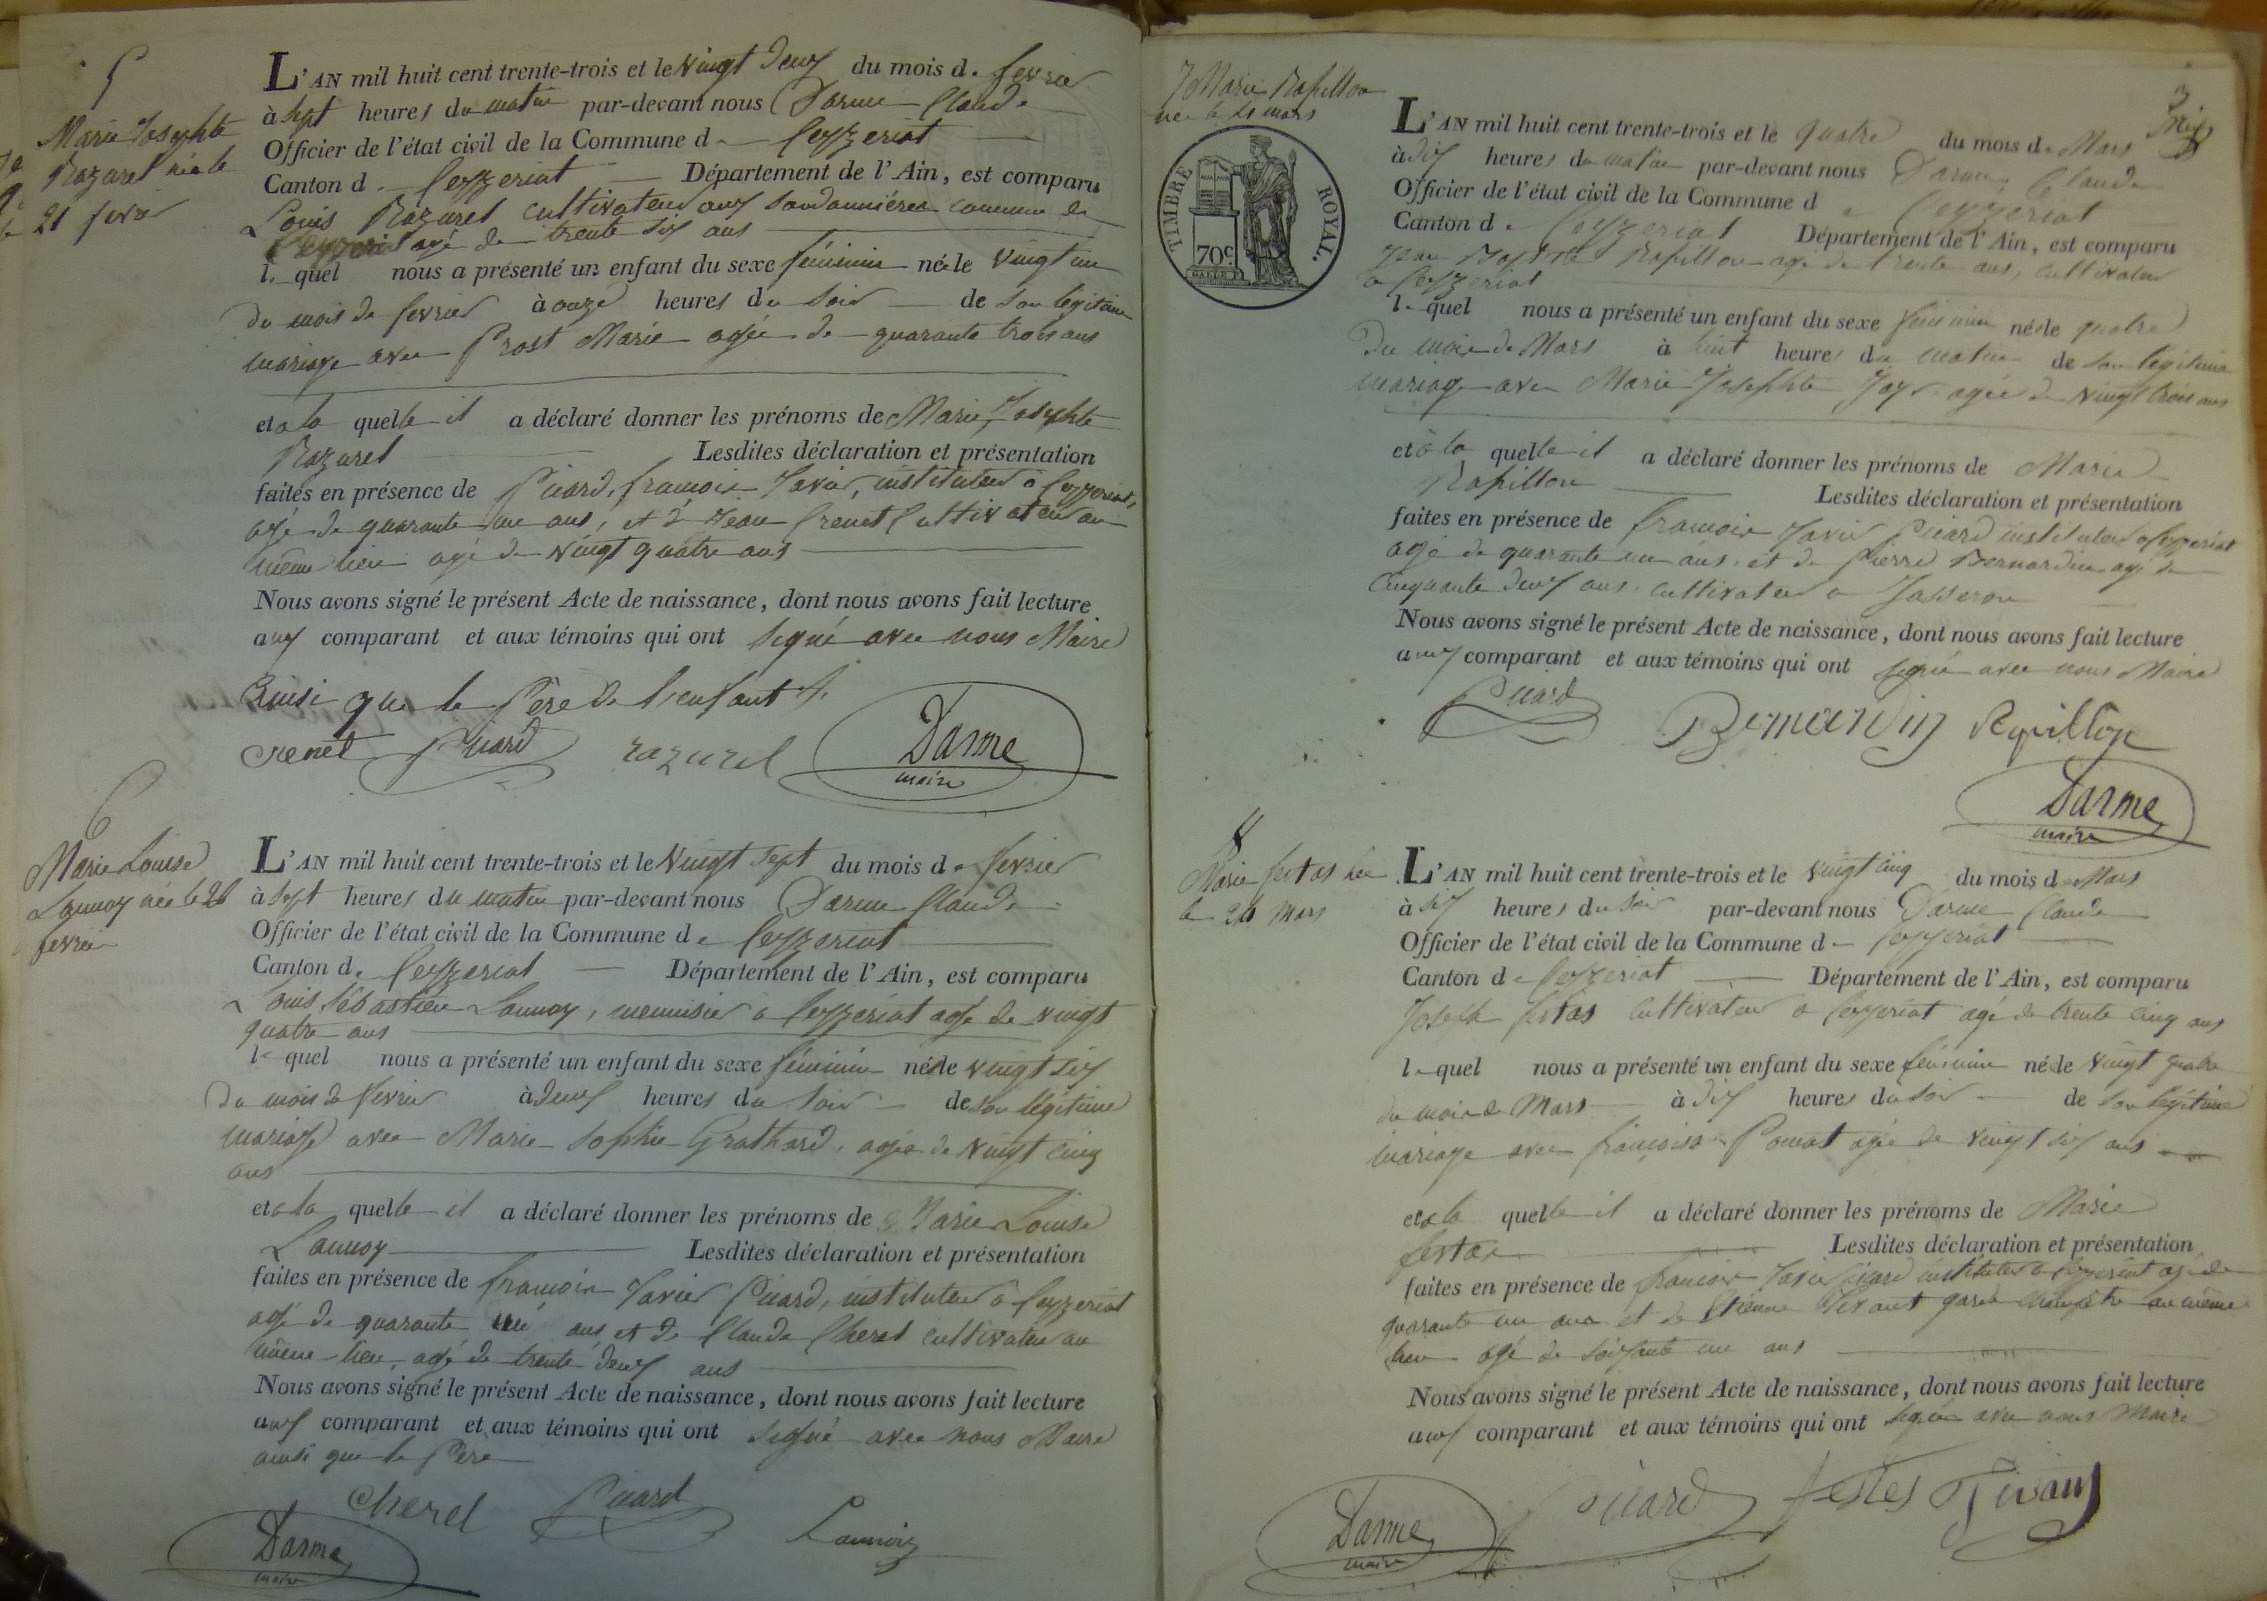 5
Marie Josephte
Razurel née le
21 fevrier
L'AN mil huit cent trente-trois et le vingt deux du mois de fevrier
à sept heures du matin par-devant nous Darme Claude
Officier de l'état civil de la Commune de Ceyzeriat
Canton de Ceyzeriat Département de l'Ain, est comparu
Louis Razurel cultivateur aux commune de
Ceyzeriat agé de trente six ans
lequel nous a présenté un enfant du sexe féminin née le vingt un
du mois de fevrier à onze heures du soir de son légitime
mariage avec Prost Marie agée de quarante trois ans
et a la quelle il a déclaré donner les prénoms de Marie Josephte
Razurel Lesdites déclaration et présentation
faites en présence de Picard, françois Xavier, instituteur à Ceyzeriat,
agé de quarante un ans, et d Jean Crenet Cultivateur au
même lieu agé de vingt quatre ans
Nous avons signé le présent Acte de naissance, dont nous avons fait lecture
aux comparant et aux témoins qui ont signé avec nous Maire
ainsi que le Père de l'enfant
Crenet Picard razurel Darme
maire
6
Marie Louise
Launoy née le 26
fevrier
L'AN mil huit cent trente-trois et le vingt sept du mois de fevrier
à sept heures du matin par-devant nous Darme Claude
Officier de l'état civil de la Commune de Ceyzeriat
Canton de Ceyzeriat Département de l'Ain, est comparu
Louis Sébastien Launoy, menuisier à Ceyzériat agé de vingt
quatre ans
lequel nous a présenté un enfant du sexe féminin née le vingt six
du mois de fevrier à deux heures du soir de son légitime
mariage avec Marie Sophie Grathard, agée de vingt cinq
ans
et a la quelle il a déclaré donner les prénoms de Marie Louise
Launoy Lesdites déclaration et présentation
faites en présence de françois Xavier Picard, instituteur à Ceyzeriat
agé de quarante un ans et de Claude Cherel cultivateur au
même lieu, agé de trente deux ans
Nous avons signé le présent Acte de naissance, dont nous avons fait lecture
aux comparant et aux témoins qui ont signé avec nous Maire
ainsi que le Père
Cherel Picard Launoiy
Darme
maire
7 Marie Rapillon
née le mars
TIMBRE ROYAL.
70c
3
L'AN mil huit cent trente-trois et le quatre du mois de Mars
à dix heures du matin par-devant nous Darme Claude
Officier de l'état civil de la Commune de Ceyzeriat
Canton de Ceyzeriat Département de l'Ain, est comparu
Jean Baptiste Rapillon agé de trente ans, cultivateur
a Ceyzeriat
lequel nous a présenté un enfant du sexe féminin née le quatre
du mois de Mars à huit heures du matin de son légitime
mariage avec Marie Josephte Joyr agée de vingt trois ans
et à la quelle il a déclaré donner les prénoms de Marie
Rapillon Lesdites déclaration et présentation
faites en présence de françois Xavier Picard instituteur a Ceyzeriat
agé de quarante un ans et de Pierre Bernardin agé de
Cinquante deux ans cultivateur a Jasseron
Nous avons signé le présent Acte de naissance, dont nous avons fait lecture
aux comparant et aux témoins qui ont signé avec nous Maire
Picard Bernardin Rapillon
Darme
maire
8
Marie festas née
le 24 Mars
L'AN mil huit cent trente-trois et le vingt cinq du mois de Mars
à six heures du soir par-devant nous Darme Claude
Officier de l'état civil de la Commune de Ceyzeriat
Canton de Ceyzeriat Département de l'Ain, est comparu
Joseph festas Cultivateur a Ceyzeriat agé de trente cinq ans
lequel nous a présenté un enfant du sexe féminin née le vingt quatre
du mois de Mars à dix heures du soir de son légitime
mariage avec françoise agée de vingt six ans
et a la quelle il a déclaré donner les prénoms de Marie
festas Lesdites déclaration et présentation
faites en présence de francois Xavier Picard instituteur a Ceyzeriat agé de
quarante un ans et de Etienne garde champetre au même
lieu agé de soixante un ans
Nous avons signé le présent Acte de naissance, dont nous avons fait lecture
aux comparant et aux témoins qui ont signé avec nous Maire
Darme Picard festes
maire